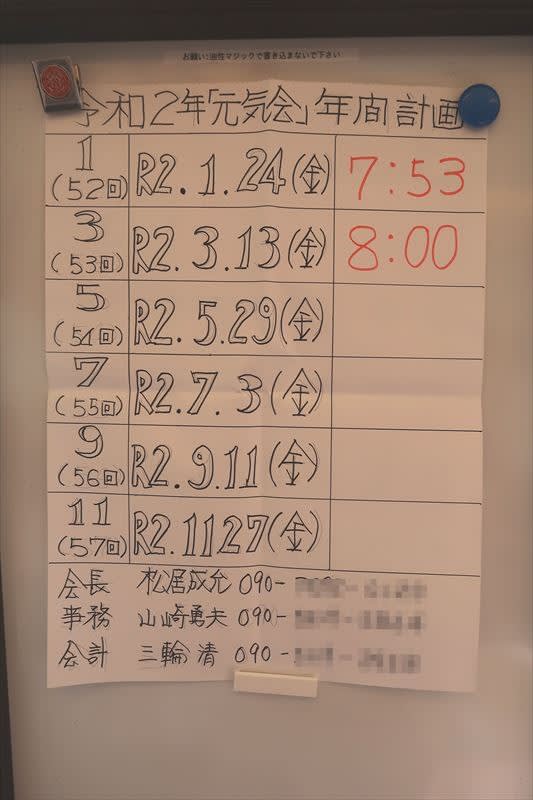 お願い:油性マジックで書き込まないで下さい
令和2年「元気会」年間計画
1 R2.1.24(金) 7:53
(52回)
3 R2.3.13(金) 8:00
(53回)
5 R2.5.29(金)
(54回)
7 R2.7.3(金)
(55回)
9 R2.9.11(金)
(56回)
11 R2.1127(金)
(57回)
会長 松居成允 090-
事務 山崎勇夫 090-
会計 三輪清 090-